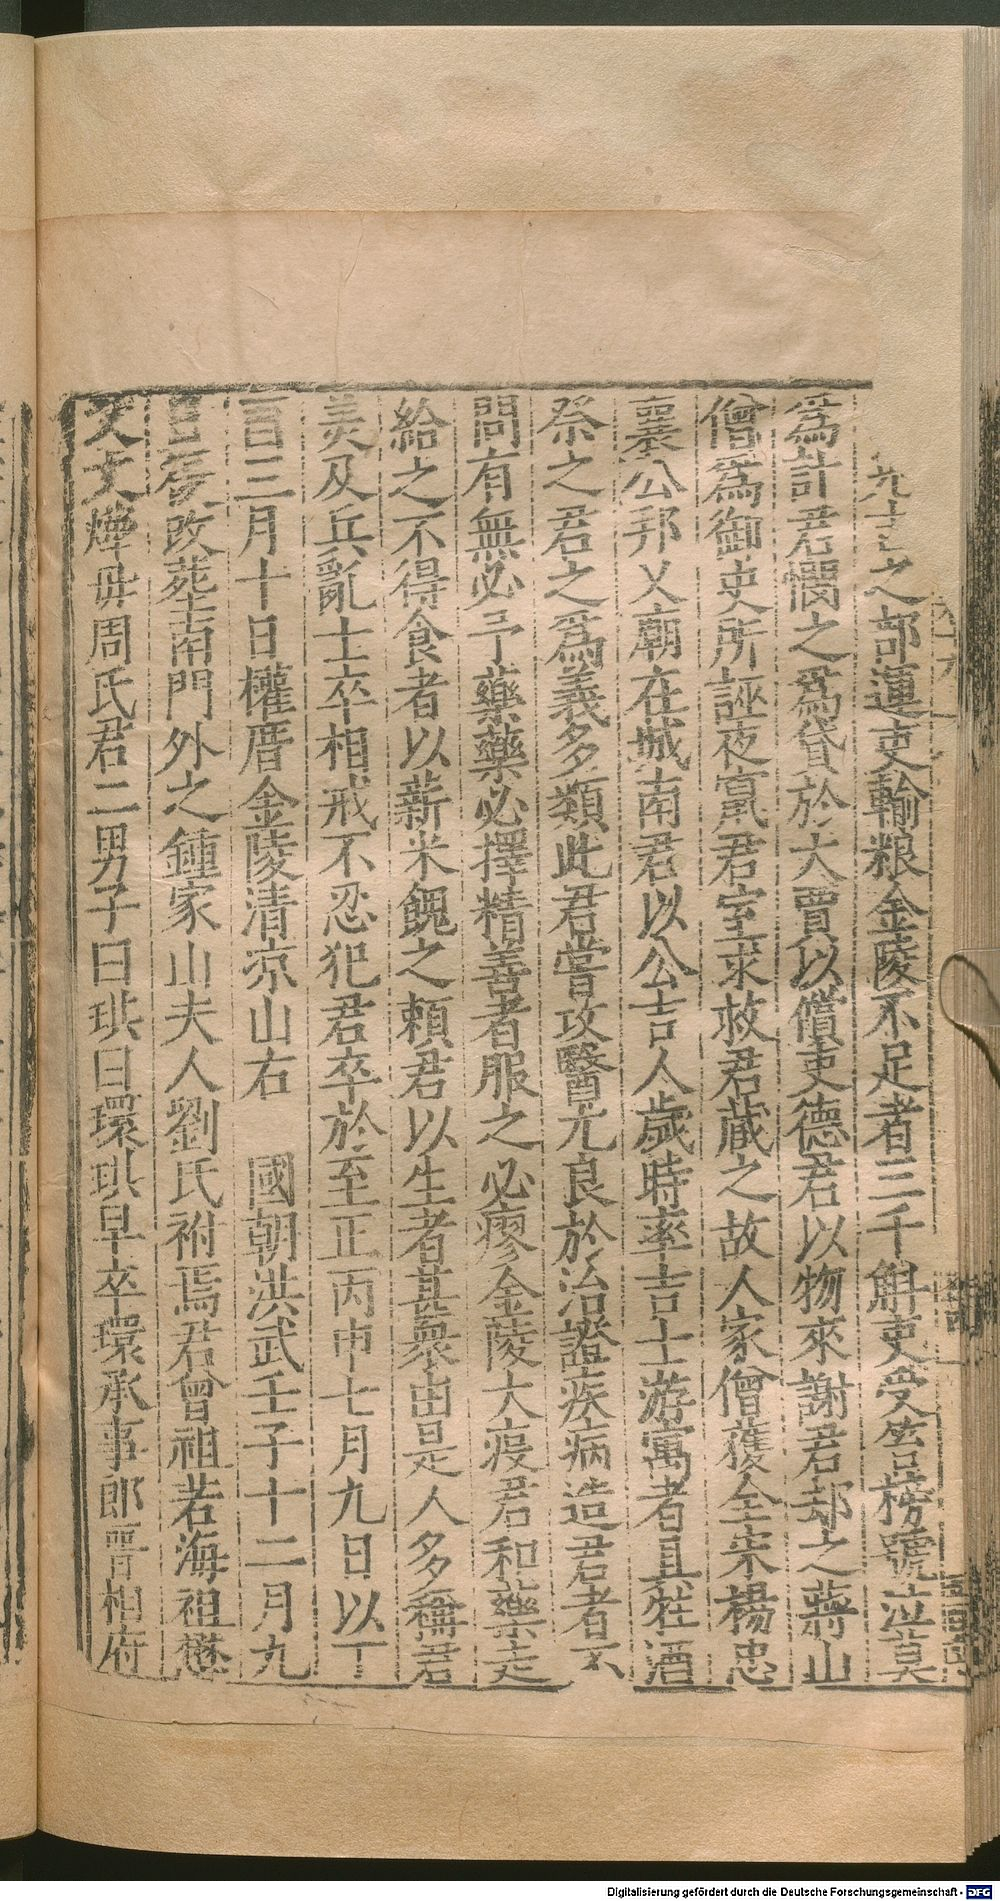 之部運吏輸粮金陵不足者三千斛吏受笞榜號泣莫
爲計君憫之爲貸於大賈以償吏德君以物來謝君却之蔣山
僧爲御史所誣夜竄君室求救君蔵之故人家僧獲全宋楊忠
襄公邦乂廟在城南君以公吉人歲時率吉士游寓者具牲酒
祭之君之爲義多類此君嘗攻醫尤良於治證疾病造君者不
問有無必予藥藥必擇精善者服之必瘳金陵大疫君和藥走
給之不得食者以薪米餽之頼君以生者甚衆由是人多稱君
美及兵亂士卒相戒不忍犯君卒於至正丙申七月九日以丁
酉三月十日權厝金陵清凉山右 國朝洪武壬子十二月九
日改葬南門外之鍾家山夫人劉氏祔焉君曾祖若海祖懋
文父燁毋周氏君二男子曰珙曰環珙早卒環承事郎晋相府
Digitalisierung gefördert durch die Deutsche Forschungsgemeinschaft - DFG